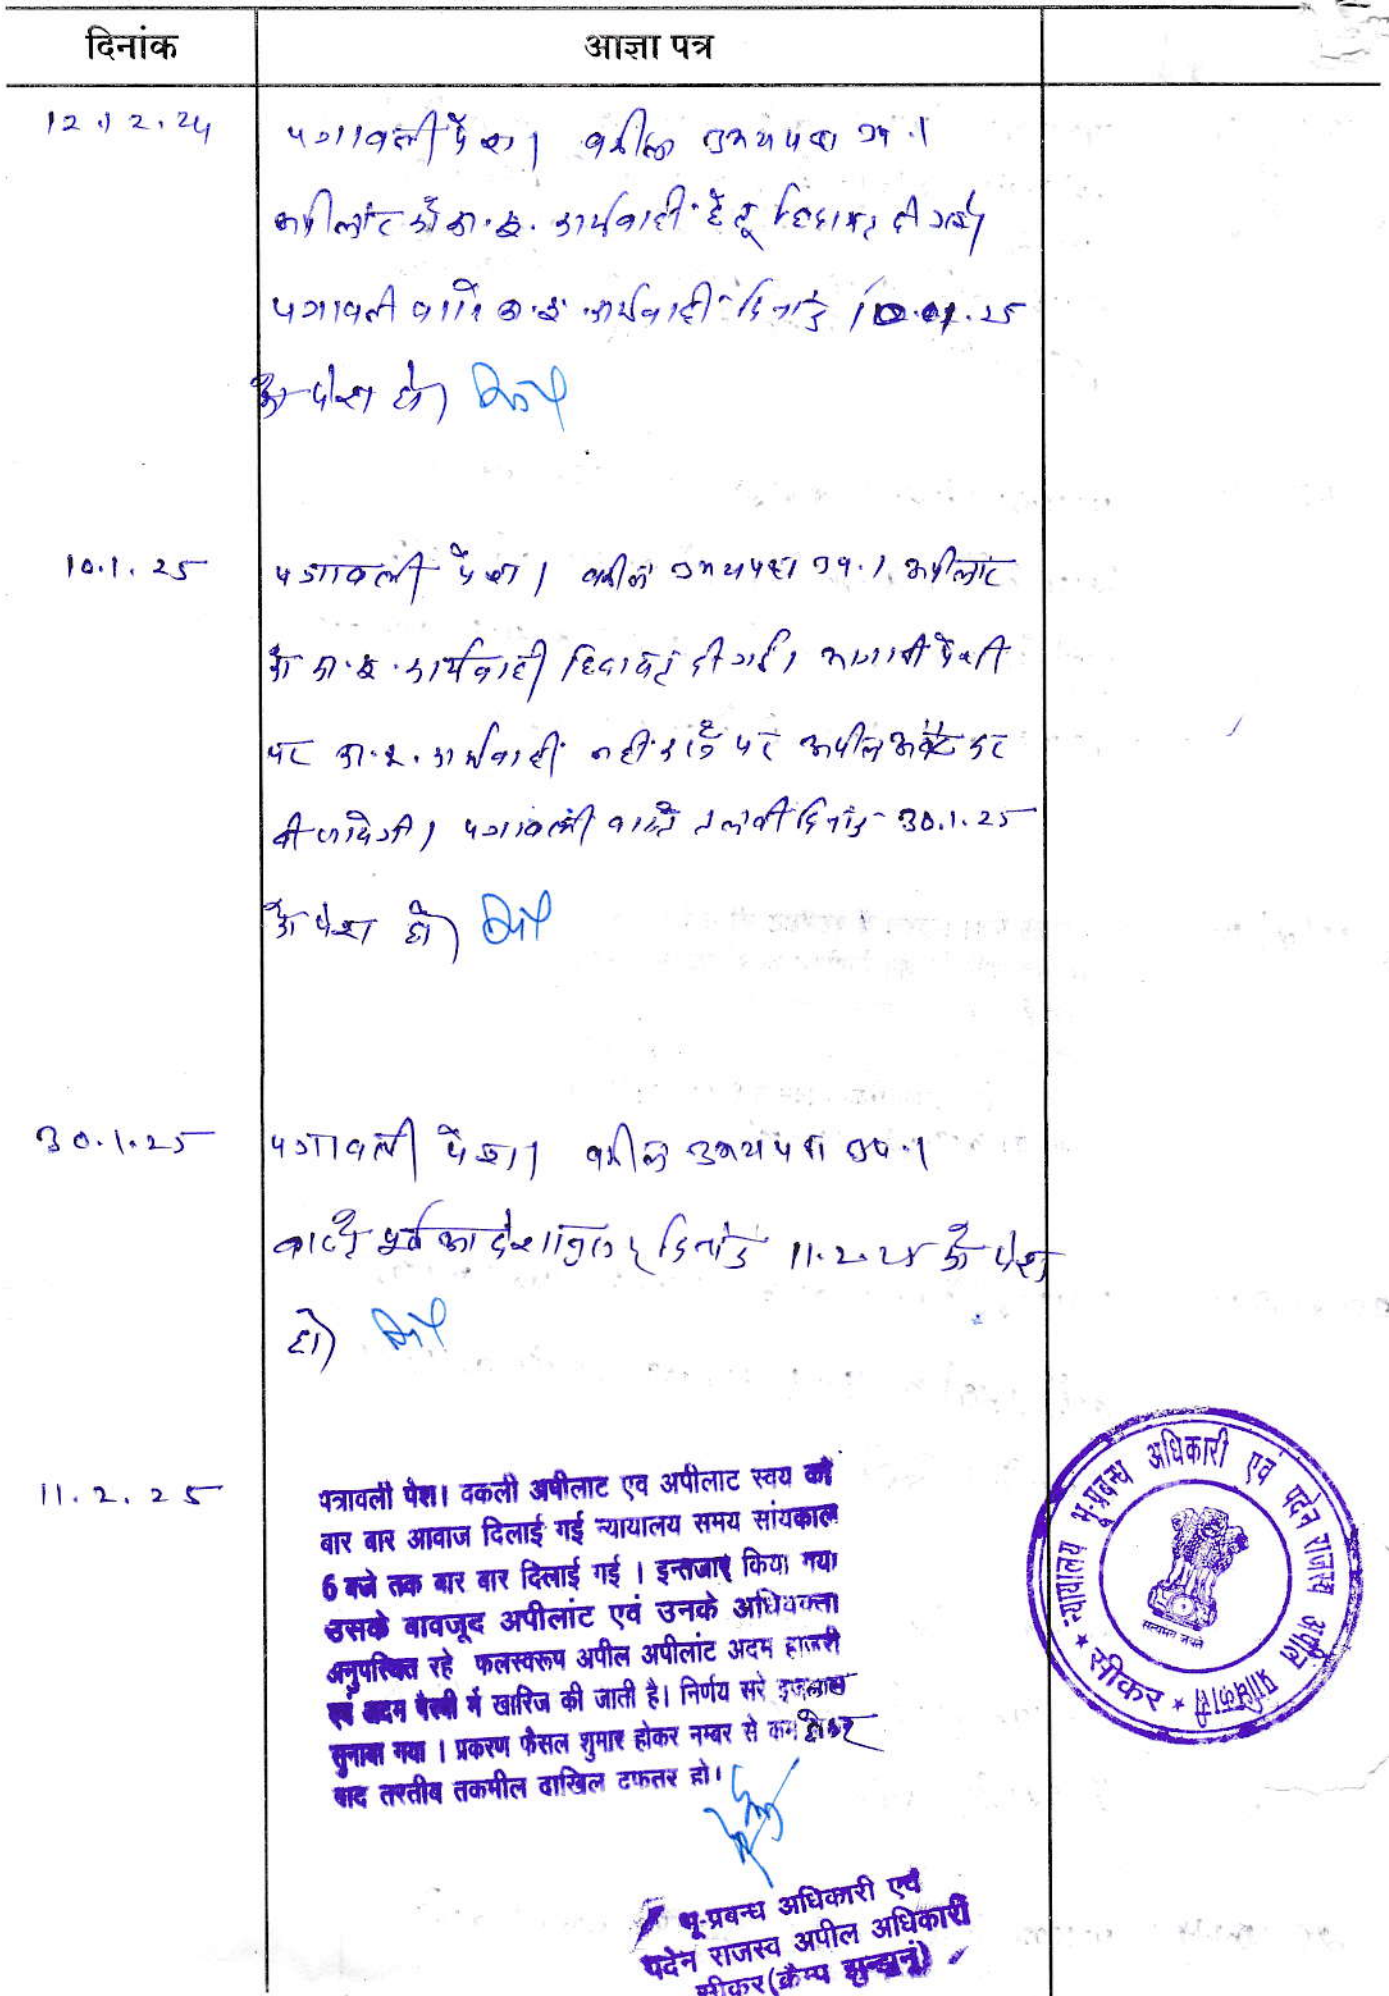 दिनांक आज्ञा पत्र
12.12.24 पत्रावली पेश। वकील उभयपक्ष उप.।
अपीलांट को का.इ. कार्यवाही हेतु हिदायत दी गई।
पत्रावली वास्ते का.इ. कार्यवाही दिनांक 10.01.25
को पेश हो।
10.1.25 पत्रावली पेश। वकील उभयपक्ष उप.। अपीलांट
को का.इ. कार्यवाही हिदायत दी गई। आगामी पेशी
पर का.इ. कार्यवाही नहीं करने पर अपील कर
दी जावेगी। पत्रावली वास्ते तलबी दिनांक 30.1.25
को पेश हो।
30.1.25 पत्रावली पेश। वकील उभयपक्ष उप.।
वास्ते पूर्व आदेशानुसार दिनांक 11.2.25 को पेश
हो।
11.2.25 पत्रावली पेश। वकली अपीलाट एव अपीलाट स्वय को
बार बार आवाज दिलाई गई न्यायालय समय सांयकाल
6 बजे तक बार बार दिलाई गई । इन्तजार किया गया
उसके बावजूद अपीलांट एवं उनके अधिवक्ता
अनुपस्थित रहे फलस्वरूप अपील अपीलांट अदम हाजरी
एवं अदम पैरवी में खारिज की जाती है। निर्णय सरे इजलास
सुनाया गया । प्रकरण फैसल शुमार होकर नम्बर से कम होकर
बाद तरतीब तकमील दाखिल दफतर हो।
भू-प्रबन्ध अधिकारी एवं
पदेन राजस्व अपील अधिकारी
सीकर (कैम्प झुन्झुनूं)
न्यायालय भू-प्रबन्ध अधिकारी एवं पदेन राजस्व अपील प्राधिकारी
★ सीकर ★
सत्यमेव जयते